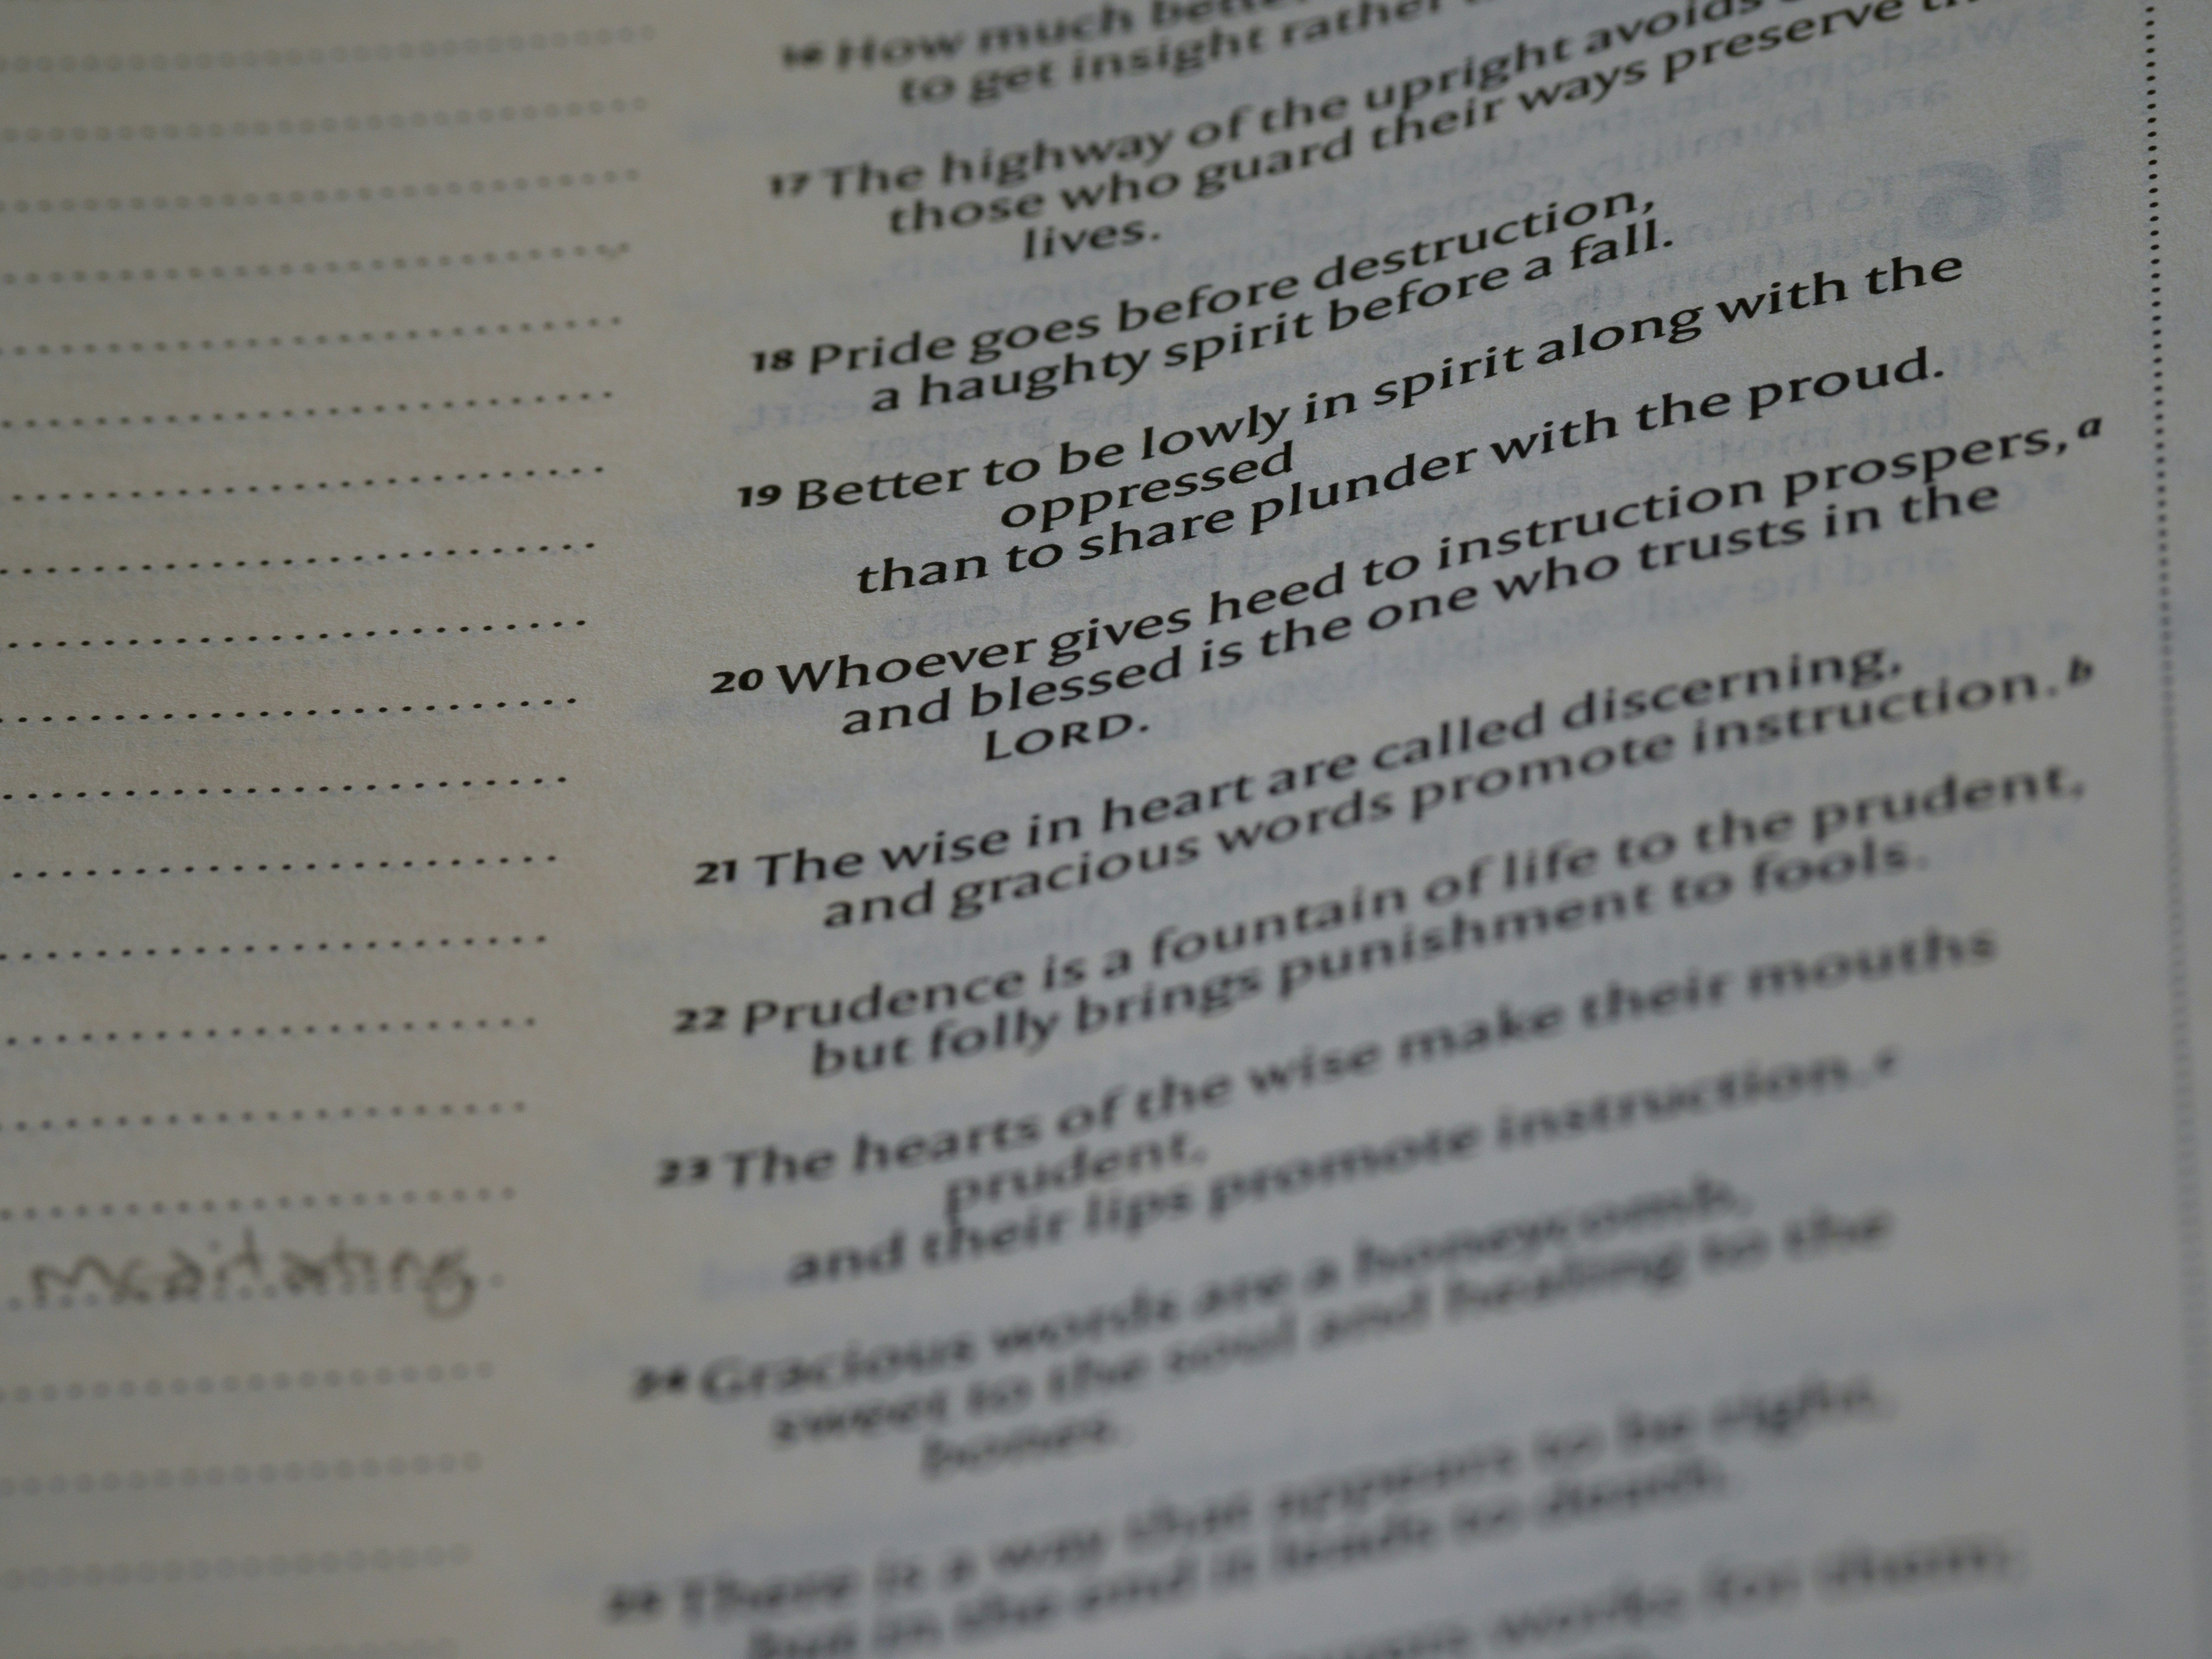 16 How much
to get insight rather
17 The highway of the upright avoids
those who guard their ways preserve
lives.
18 Pride goes before destruction,
a haughty spirit before a fall.
19 Better to be lowly in spirit along with the
oppressed
than to share plunder with the proud.
20 Whoever gives heed to instruction prospers, a
and blessed is the one who trusts in the
LORD.
21 The wise in heart are called discerning,
and gracious words promote instruction. b
22 Prudence is a fountain of life to the prudent,
but folly brings punishment to fools.
23 The hearts of the wise make their mouths
prudent,
and their lips promote instruction. c
meditating.
24 Gracious words are a honeycomb,
sweet to the soul and healing to the
bones.
25 There is a way that appears to be right,
but in the end it leads to death.
works for them;